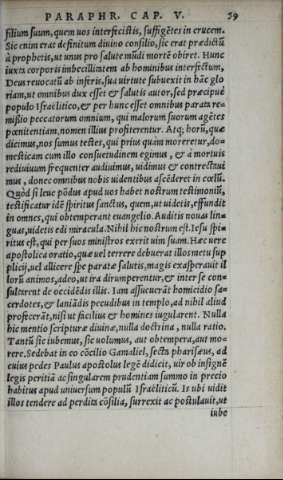 PARAPHR. CAP. V. 59
filium suum, quem uos interfecistis, suffigẽtes in crucem.
Sic enim erat definitum diuino consilio, sic erat prædictũ
à prophetis, ut unus pro salute mũdi mortẽ obiret. Hunc
iuxta corporis imbecillitatem ab hominibus interfectum,
Deus reuocatũ ab inferis, sua uirtute subuexit in hãc glo
riam, ut omnibus dux esset & salutis autor, sed præcipuè
populo Israëlitico, & per hunc esset omnibus parata re-
missio peccatorum omnium, qui malorum suorum agẽtes
pœnitentiam, nomen illius profiterentur. Atq; horũ, quæ
dicimus, nos sumus testes, qui prius quàm moreretur, do-
mesticam cum illo consuetudinem egimus, & à mortuis
rediuiuum frequenter audiuimus, uidimus & contrectaui
mus, donec omnibus nobis uidentibus ascẽderet in cœlũ.
Quòd si leue põdus apud uos habet nostrum testimoniũ,
testificatur idẽ spiritus sanctus, quem, ut uidetis, effundit
in omnes, qui obtemperant euangelio. Auditis nouas lin
guas, uidetis edi miracula. Nihil hic nostrum est. Iesu spi
ritus est, qui per suos ministros exerit uim suam. Hæc uere
apostolica oratio, quæ uel terrere debuerat illos metu sup
plicij, uel allicere spe paratæ salutis, magis exasperauit il
lorũ animos, adeo, ut ira dirumperentur, & inter se con-
sultarent de occidẽdis illis. Iam assueuerãt homicidio sa-
cerdotes, & laniãdis pecudibus in templo, ad nihil aliud
profecerãt, nisi ut facilius & homines iugularent. Nulla
hic mentio scripturæ diuinæ, nulla doctrina, nulla ratio.
Tantũ sic iubemus, sic uolumus, aut obtempera, aut mo-
rere. Sedebat in eo cõcilio Gamaliel, secta pharisæus, ad
cuius pedes Paulus apostolus legẽ didicit, uir ob insignẽ
legis peritiã ac singularem prudentiam summo in precio
habitus apud uniuersum populũ Israëliticũ. Is ubi uidit
illos tendere ad perdita cõsilia, surrexit ac postulauit, ut
iube